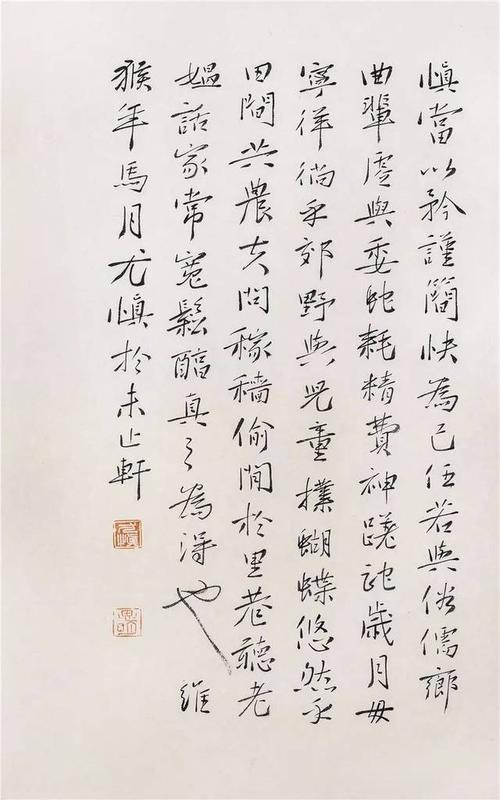 慎當以矜謹簡快為己任若與俗儒鄉
曲輩虛與委蛇耗精費神蹉跎歲月毋
寧徉徜乎郊野與兒童撲蝴蝶悠然乎
田間共農夫問稼穡偷閒於里巷聽老
媼話家常寬鬆醕真之為淂也 維
猴年馬月尤慎於未止軒